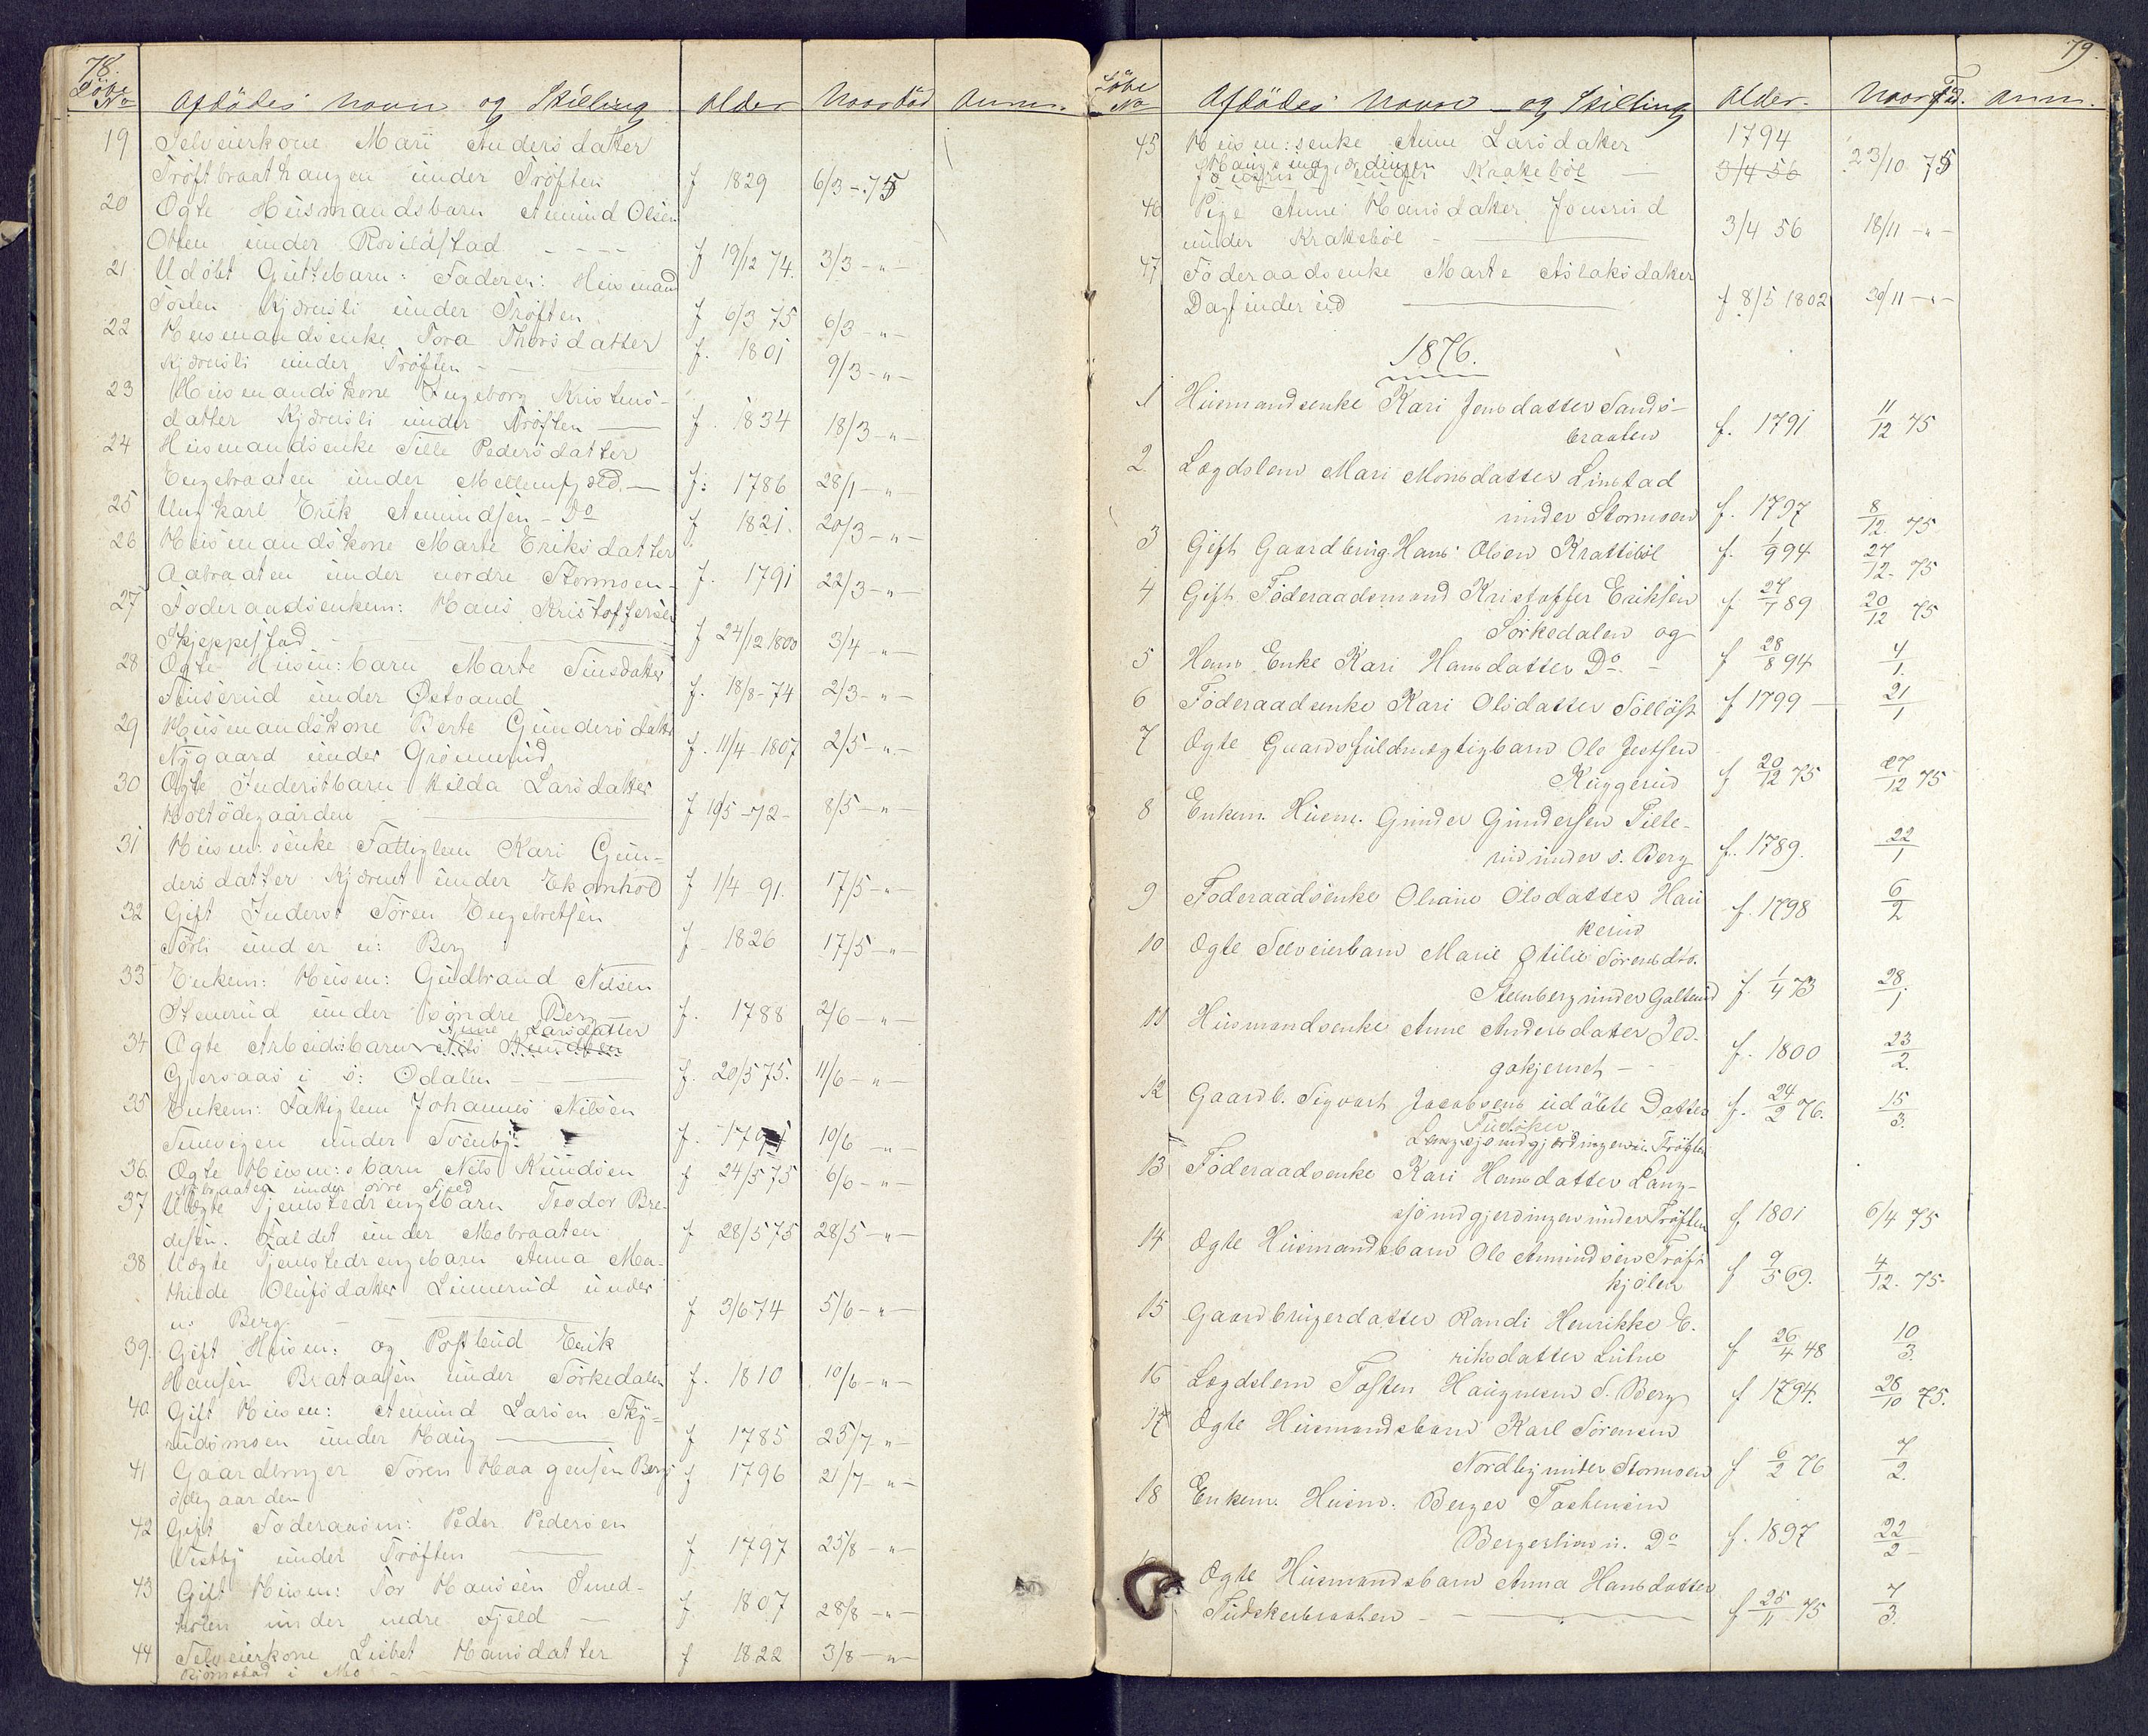 78.
Löbe No Afdödes Navn og Stilling Alder Naar död Anm.
19 Selveierkone Mari Andersdatter
Tröftbraathaugen under Tröften f 1829 6/3 - 75
20 Ægte Husmandsbarn Amund Olsen
under Rovildstad - - - - f 19/12 74. 3/3 - „ -
21 Udöbt Guttebarn: Faderen: Husmand
Kjörnsli under Tröften f 6/3 75 6/3 - „ -
22 Husmandsenke Tora Thorsdatter
Kjörnsli under Tröften - f. 1801 9/3 - „ -
23 Husmandskone Ingeborg Kristens-
datter Kjörnsli under Tröften — f. 1834 18/3 - „ -
24 Husmandsenke Sille Pedersdatter
Engebraaten under — f: 1786 28/1 - „ -
25 Ungkarl Erik Amundsen - Do f 1821. 20/3 - „ -
26 Husmandskone Marte Eriksdatter
Aabraaten under nordre Stormoen - f. 1791 22/3 - „ -
27 Föderaadsenkem: Hans Kristoffersen
Skjeppestad f 24/12 1800 3/4 - „ -
28 Ægte Husm: barn Marte
under f. 18/8 - 74 2/3 - „ -
29 Husmandskone Berte Gundersdatter
Nygaard under Grönnerud f. 11/4 - 1807 2/5 - „ -
30 Ægte Inderstbarn Hilda Larsdatter
Holtödegaarden f 19/5 - 72 - 8/5 - „ -
31 Husm: senke Fattiglem Kari Gun-
dersdatter under Ekornhol f 1/4 - 91. 17/5 - „ -
32 Gift Inderst Sören Engebretsen
under n: Berg f - 1826 17/5 - „ -
33 Enkem: Husm: Gudbrand Nilsen
Stenerud under söndre Berg — f. 1788 2/6 - „ -
Anne Larsdatter
34 Ægte Arbeidsbarn Nils Knudsen
i s: Odalen — f. 20/5 75. 11/6 - „ -
35 Enkem: Fattiglem Johannes Nilsen
under Svenby f. 10/6 - „ -
36. Ægte Husm: sbarn Nils Knudsen f 24/5 75 6/6 - „ -
under övre Fjeld
37 Uægte Tjenstedrengbarn Teodor Bre-
desen. Faldet under Mobraaten f 28/5 75 28/5 - „ -
38 Uægte Tjenstedrengebarn Anna Ma-
thilde Olufsdatter Linnerud under
n: Berg f 3/6 74 5/6 - „ -
39. Gift Husm: og Postbud Erik
Hansen Brataasen under Sörkedalen f. 1810 10/6 - „ -
40. Gift Husm: Amund Larsen Sky-
rudsmoen under Haug — f 1785 25/7 - „ -
41 Gaardbruger Sören Haagensen Bergs f 1796 21/7 - „ -
ödegaarden
42 Gift Föderaasm: Peder Pedersen
Vestby under Tröften — f 1797 25/8 - „ -
43 Gift Husm: Tor Hanssen Smed-
under nedre Fjeld — f 1807 28/8 - „ -
44 Selveierkone Lisbet Hansdatter f 1822 3/8 - „ -
Björnstad i Mo
79.
Löbe No Afdödes Navn og Stilling Alder. Naar död. Anm.
45 Husm: senke Anne Larsdatter 1794
under Krakeböl — 3/4 56 23/10 75
46 Pige Anne Hansdatter Jonsrud
under Krakeböl - 3/4 56 18/11 - „ -
47 Föderaadsenke Marte Aslaksdatter
Dagfinderud — f 8/5 1802 30/11 - „ -
1876.
1 Husmandsenke Kari Jensdatter Sands-
braaten f. 1791 11/12 75
2. Lægdslem Mari Monsdatter Linstad
under Stormoen f. 1797 8/12. 75.
3 Gift Gaardbrug Hans Olsen Kratteböl f. 1/9 94 27/12. 75
4 Gift Föderaadsmand Kristoffer Eriksen f 27/7 89 20/12 75
Sörkedalen og
5 Hans Enke Kari Hansdatter Do - f 28/8 94 4/1.
6 Föderaadsenke Kari Olsdatter f 1799 — 21/1
7 Ægte Gaardsfuldmægtigbarn Ole
Kuggerud f 20/12 75 27/12 75
8 Enkem. Husm. Gunder Gundersen Pille-
rud under s. Berg f. 1789. 22/1
9 Föderaadsenke Oliane Olsdatter Hau
kerud f. 1798 6/2
10 Ægte Selveierbarn Marie Otilie Sörensdtr.
Stenberg under Galterud f. 1/4 73 28/1.
11 Husmandsenke Anne Andersdatter
f. 1800 23/2.
12 Gaardb. Sigvart Jacobsens udöbte Datter f. 24/2 76. 15/3.
Tudsker
13 Föderaadsenke Kari Hansdatter Lang-
sjöundgjerdingen under Tröften f 1801 6/4 75
14 Ægte Husmandsbarn Ole Amundsen Tröft
kjölen f 9/5 69. 4/12. 75.
15 Gaardbrugerdatter Randi Henrikke E.
riksdatter f 26/4 48 10/3.
16 Lægdslem Tosten Haugnesen S. Berg f 1794. 28/10 75.
17 Ægte Husmandsbarn Karl Sörensen
Nordby under Stormoen f 6/2 76 7/2.
18 Enkem. Husm: Berger Tostensen
u. Do f. 1897 22/2 -
Ægte Husmandsbarn Anna Hansdatter
Tudskerbraaten - f 25/11 75 7/3.